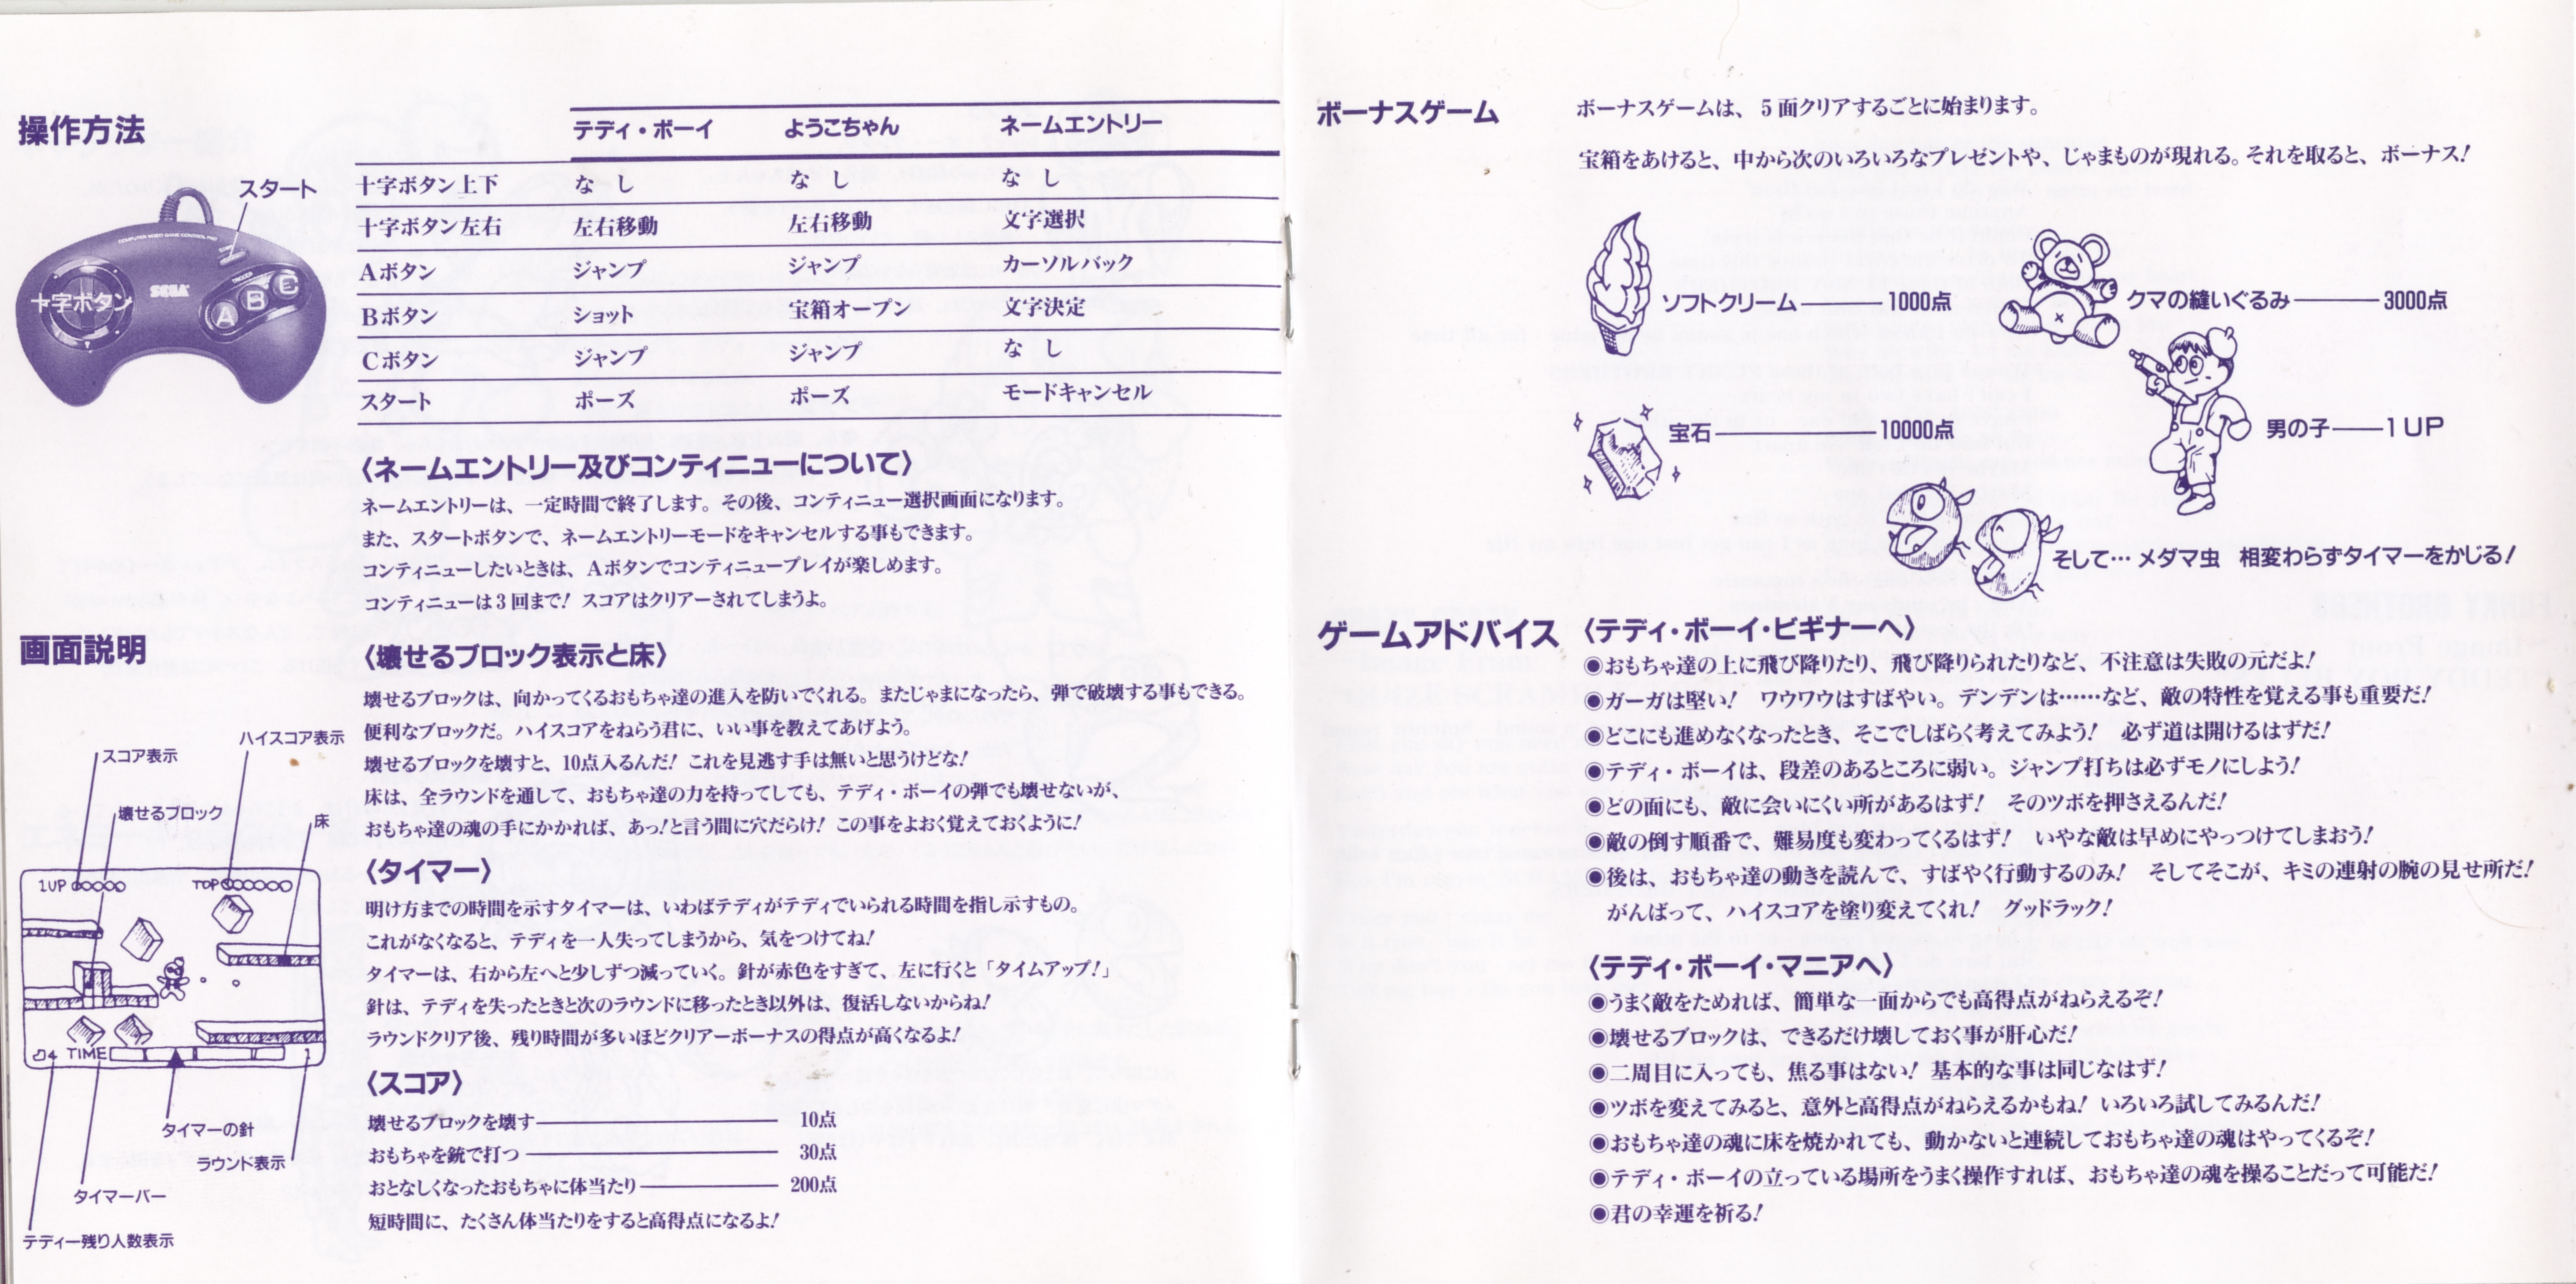 操作方法
スタート
十字ボタン
SEGA
A
B
C
テディ・ボーイ ようこちゃん ネームエントリー
十字ボタン上下 なし なし なし
十字ボタン左右 左右移動 左右移動 文字選択
Aボタン ジャンプ ジャンプ カーソルバック
Bボタン ショット 宝箱オープン 文字決定
Cボタン ジャンプ ジャンプ なし
スタート ポーズ ポーズ モードキャンセル
〈ネームエントリー及びコンティニューについて〉
ネームエントリーは、一定時間で終了します。その後、コンティニュー選択画面になります。
また、スタートボタンで、ネームエントリーモードをキャンセルする事もできます。
コンティニューしたいときは、Aボタンでコンティニュープレイが楽しめます。
コンティニューは3回まで! スコアはクリアーされてしまうよ。
画面説明
スコア表示
ハイスコア表示
壊せるブロック
床
1UP 00000
TOP 000000
4 TIME
1
タイマーの針
ラウンド表示
タイマーバー
テディー残り人数表示
〈壊せるブロック表示と床〉
壊せるブロックは、向かってくるおもちゃ達の進入を防いでくれる。またじゃまになったら、弾で破壊する事もできる。
便利なブロックだ。ハイスコアをねらう君に、いい事を教えてあげよう。
壊せるブロックを壊すと、10点入るんだ! これを見逃す手は無いと思うけどな!
床は、全ラウンドを通して、おもちゃ達の力を持ってしても、テディ・ボーイの弾でも壊せないが、
おもちゃ達の魂の手にかかれば、あっ!と言う間に穴だらけ! この事をよおく覚えておくように!
〈タイマー〉
明け方までの時間を示すタイマーは、いわばテディがテディでいられる時間を指し示すもの。
これがなくなると、テディを一人失ってしまうから、気をつけてね!
タイマーは、右から左へと少しずつ減っていく。針が赤色をすぎて、左に行くと「タイムアップ!」
針は、テディを失ったときと次のラウンドに移ったとき以外は、復活しないからね!
ラウンドクリア後、残り時間が多いほどクリアーボーナスの得点が高くなるよ!
〈スコア〉
壊せるブロックを壊す―――10点
おもちゃを銃で打つ―――30点
おとなしくなったおもちゃに体当たり―――200点
短時間に、たくさん体当たりをすると高得点になるよ!
ボーナスゲーム
ボーナスゲームは、5面クリアするごとに始まります。
宝箱をあけると、中から次のいろいろなプレゼントや、じゃまものが現れる。それを取ると、ボーナス!
ソフトクリーム―――1000点
クマの縫いぐるみ―――3000点
宝石―――10000点
男の子――1UP
そして…メダマ虫 相変わらずタイマーをかじる!
ゲームアドバイス
〈テディ・ボーイ・ビギナーへ〉
◉おもちゃ達の上に飛び降りたり、飛び降りられたりなど、不注意は失敗の元だよ!
◉ガーガは堅い! ワウワウはすばやい。デンデンは……など、敵の特性を覚える事も重要だ!
◉どこにも進めなくなったとき、そこでしばらく考えてみよう! 必ず道は開けるはずだ!
◉テディ・ボーイは、段差のあるところに弱い。ジャンプ打ちは必ずモノにしよう!
◉どの面にも、敵に会いにくい所があるはず! そのツボを押さえるんだ!
◉敵の倒す順番で、難易度も変わってくるはず! いやな敵は早めにやっつけてしまおう!
◉後は、おもちゃ達の動きを読んで、すばやく行動するのみ! そしてそこが、キミの連射の腕の見せ所だ!
がんばって、ハイスコアを塗り変えてくれ! グッドラック!
〈テディ・ボーイ・マニアへ〉
◉うまく敵をためれば、簡単な一面からでも高得点がねらえるぞ!
◉壊せるブロックは、できるだけ壊しておく事が肝心だ!
◉二周目に入っても、焦る事はない! 基本的な事は同じなはず!
◉ツボを変えてみると、意外と高得点がねらえるかもね! いろいろ試してみるんだ!
◉おもちゃ達の魂に床を焼かれても、動かないと連続しておもちゃ達の魂はやってくるぞ!
◉テディ・ボーイの立っている場所をうまく操作すれば、おもちゃ達の魂を操ることだって可能だ!
◉君の幸運を祈る!